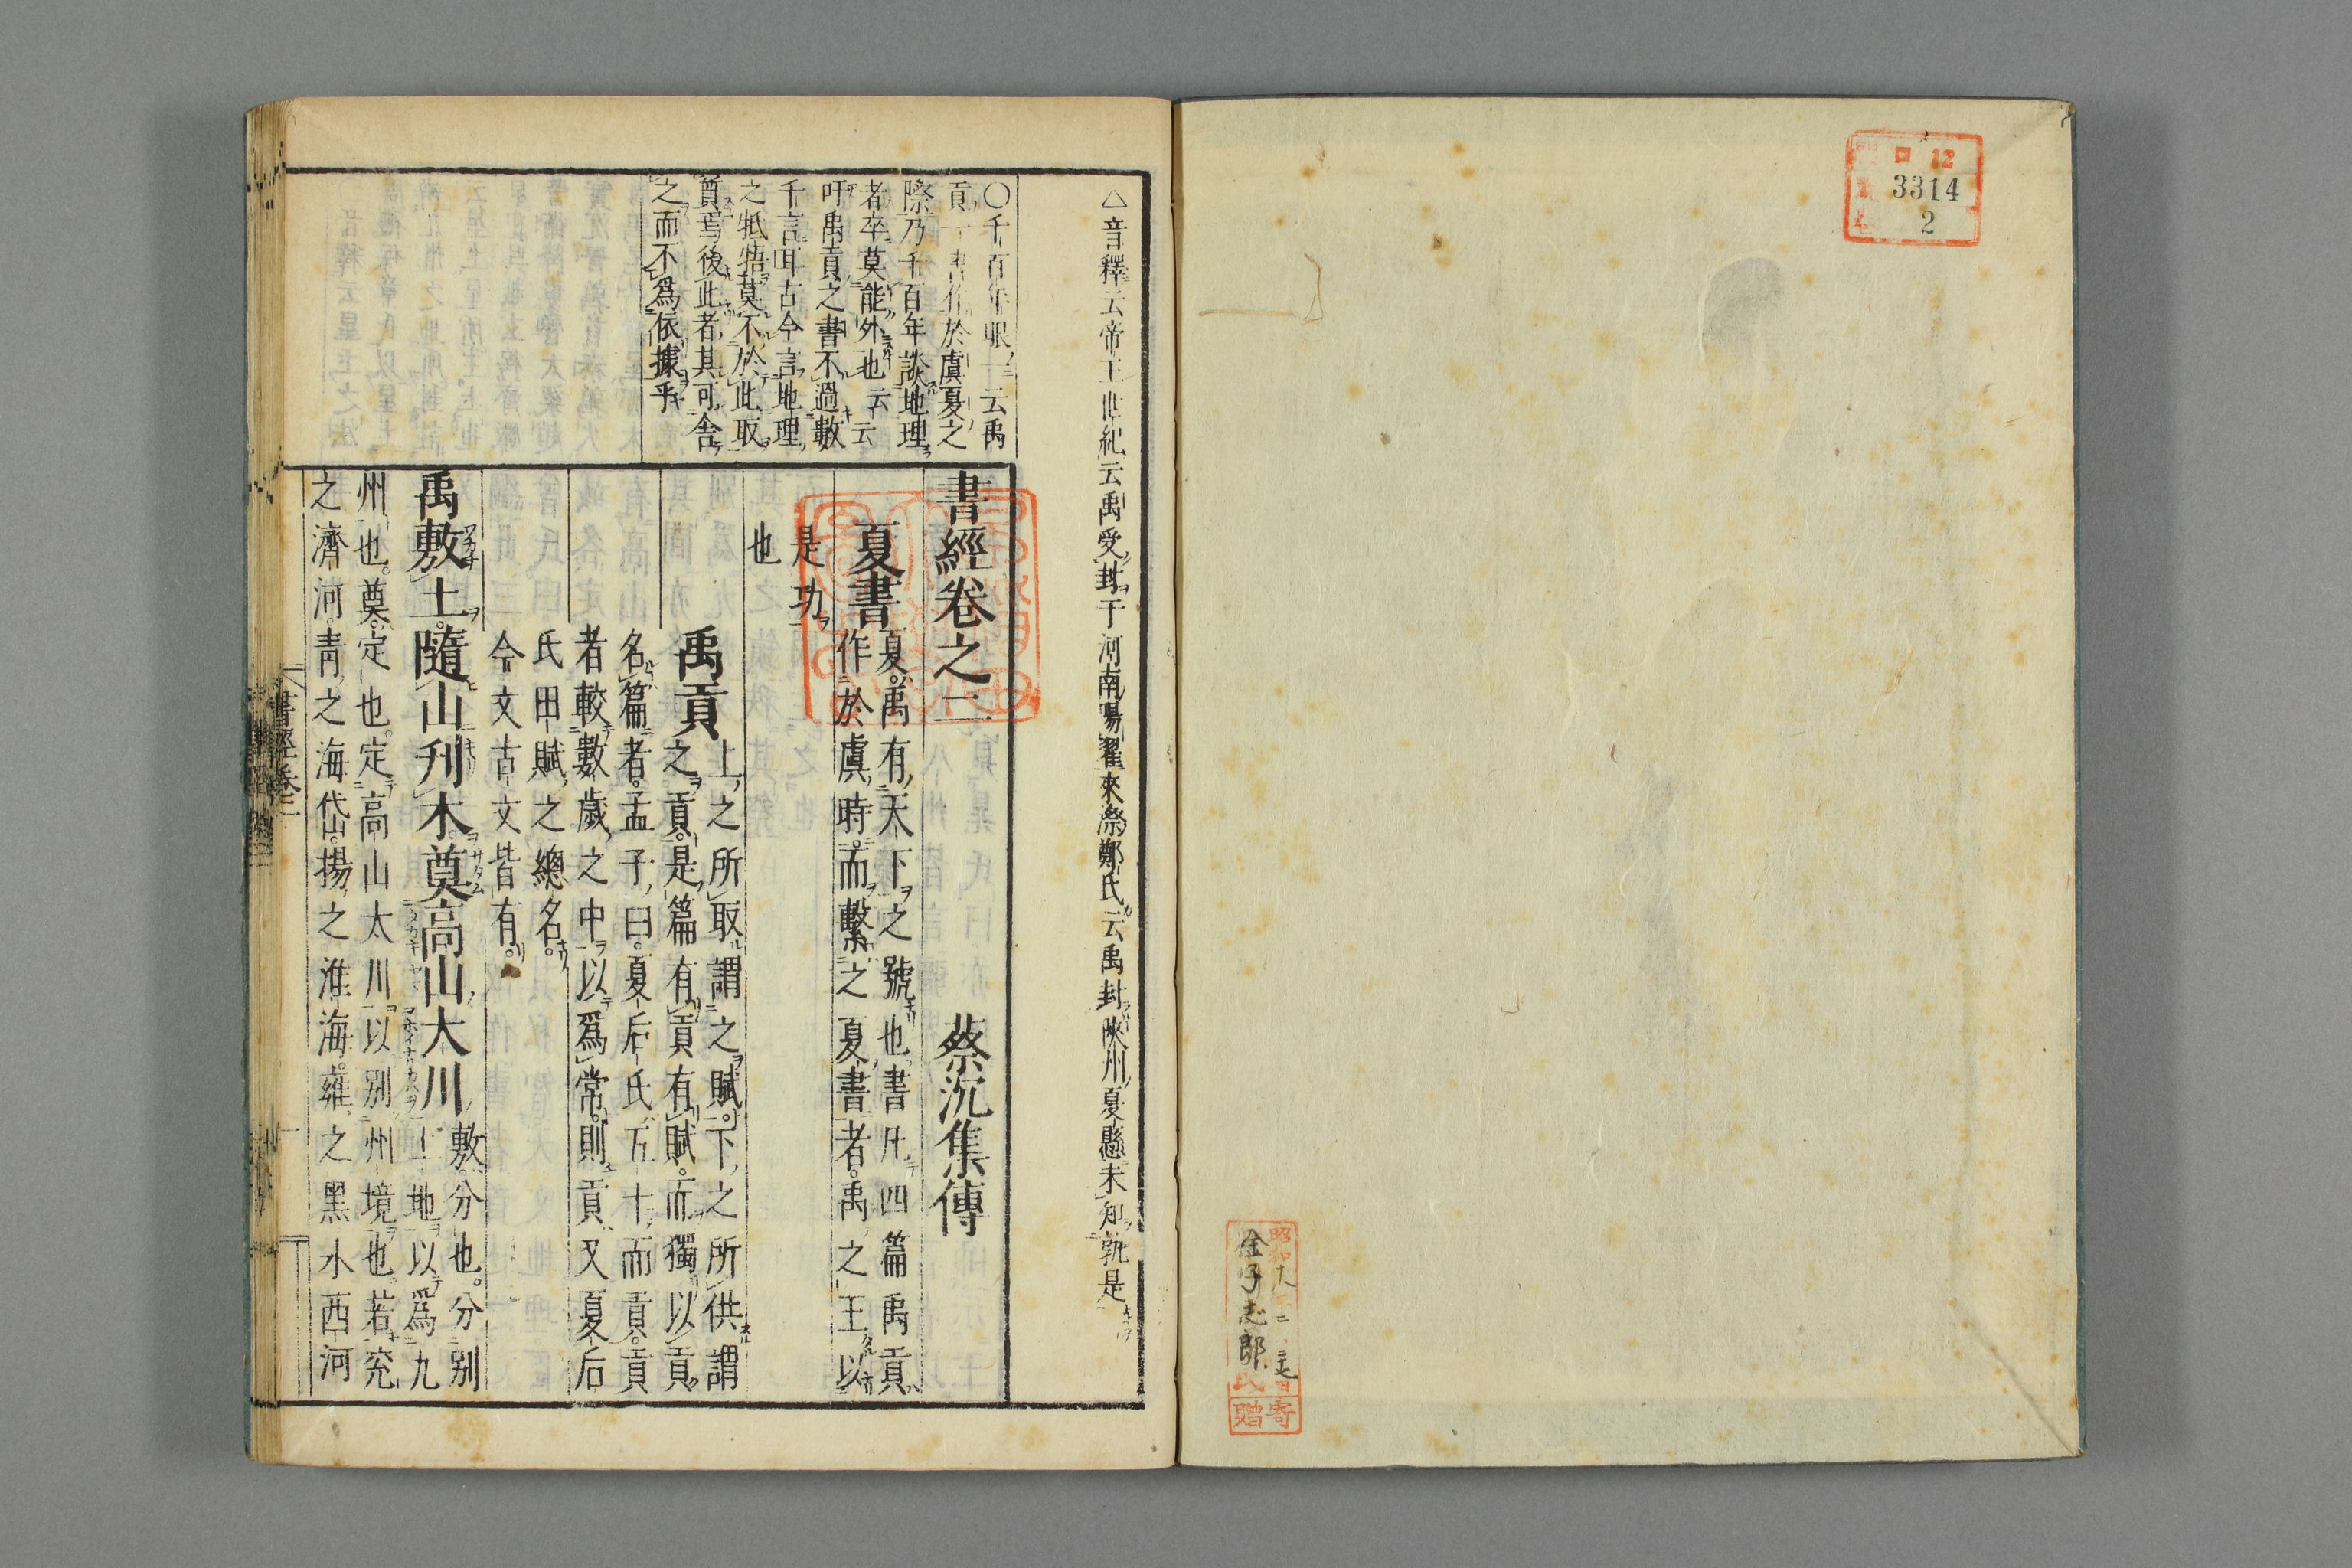 12
3314
2
金子志郎
氏
寄
贈
△音釋云帝王世紀云禹受封于河南陽翟來漈鄭氏云禹封陝州夏縣未知孰是
〇千百年眼一云禹
貢一書作於虞夏之
際乃千百年談地理
者卒莫能外也云云
吁禹貢之書不過數
千言耳古今言地理
之牴牾莫不於此取
質焉後此者其可舍
之而不爲依據乎
書經卷之二 蔡沉集傳
夏書
夏禹有天下之號也書凡四篇禹貢
作於虞時而繫之夏書者禹之王以
是功
也
禹貢
上之所取謂之賦下之所供謂
之貢是篇有貢有賦而獨以貢
名篇者孟子曰夏后氏五十而貢貢
者較數歲之中以爲常則貢又夏后
氏田賦之總名
今文古文皆有
禹敷土隨山刋木奠高山大川
敷分也分别
土地以爲九
州也奠定也定高山大川以别州境也若兖
之濟河青之海岱揚之淮海雍之黑水西河
書經卷二